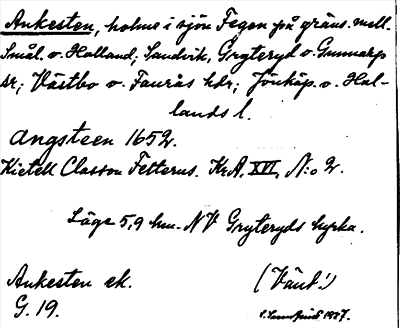 Ankesten, holme i sjön Fegen på gräns. mell.
Smål. o. Halland; Sandvik, Gryteryd o. Gunnarp
sr; Västbo o. Faurås hdr; Jönköp. o. Hal-
lands l.
Angsteen 1652.
Kietell Classon Felterus. KrA. XVI, N:o 2.
Läge 5,9 km. NV Gryteryds kyrka.
Ankesten ek. (Vänt!)
G. 19. 1927.